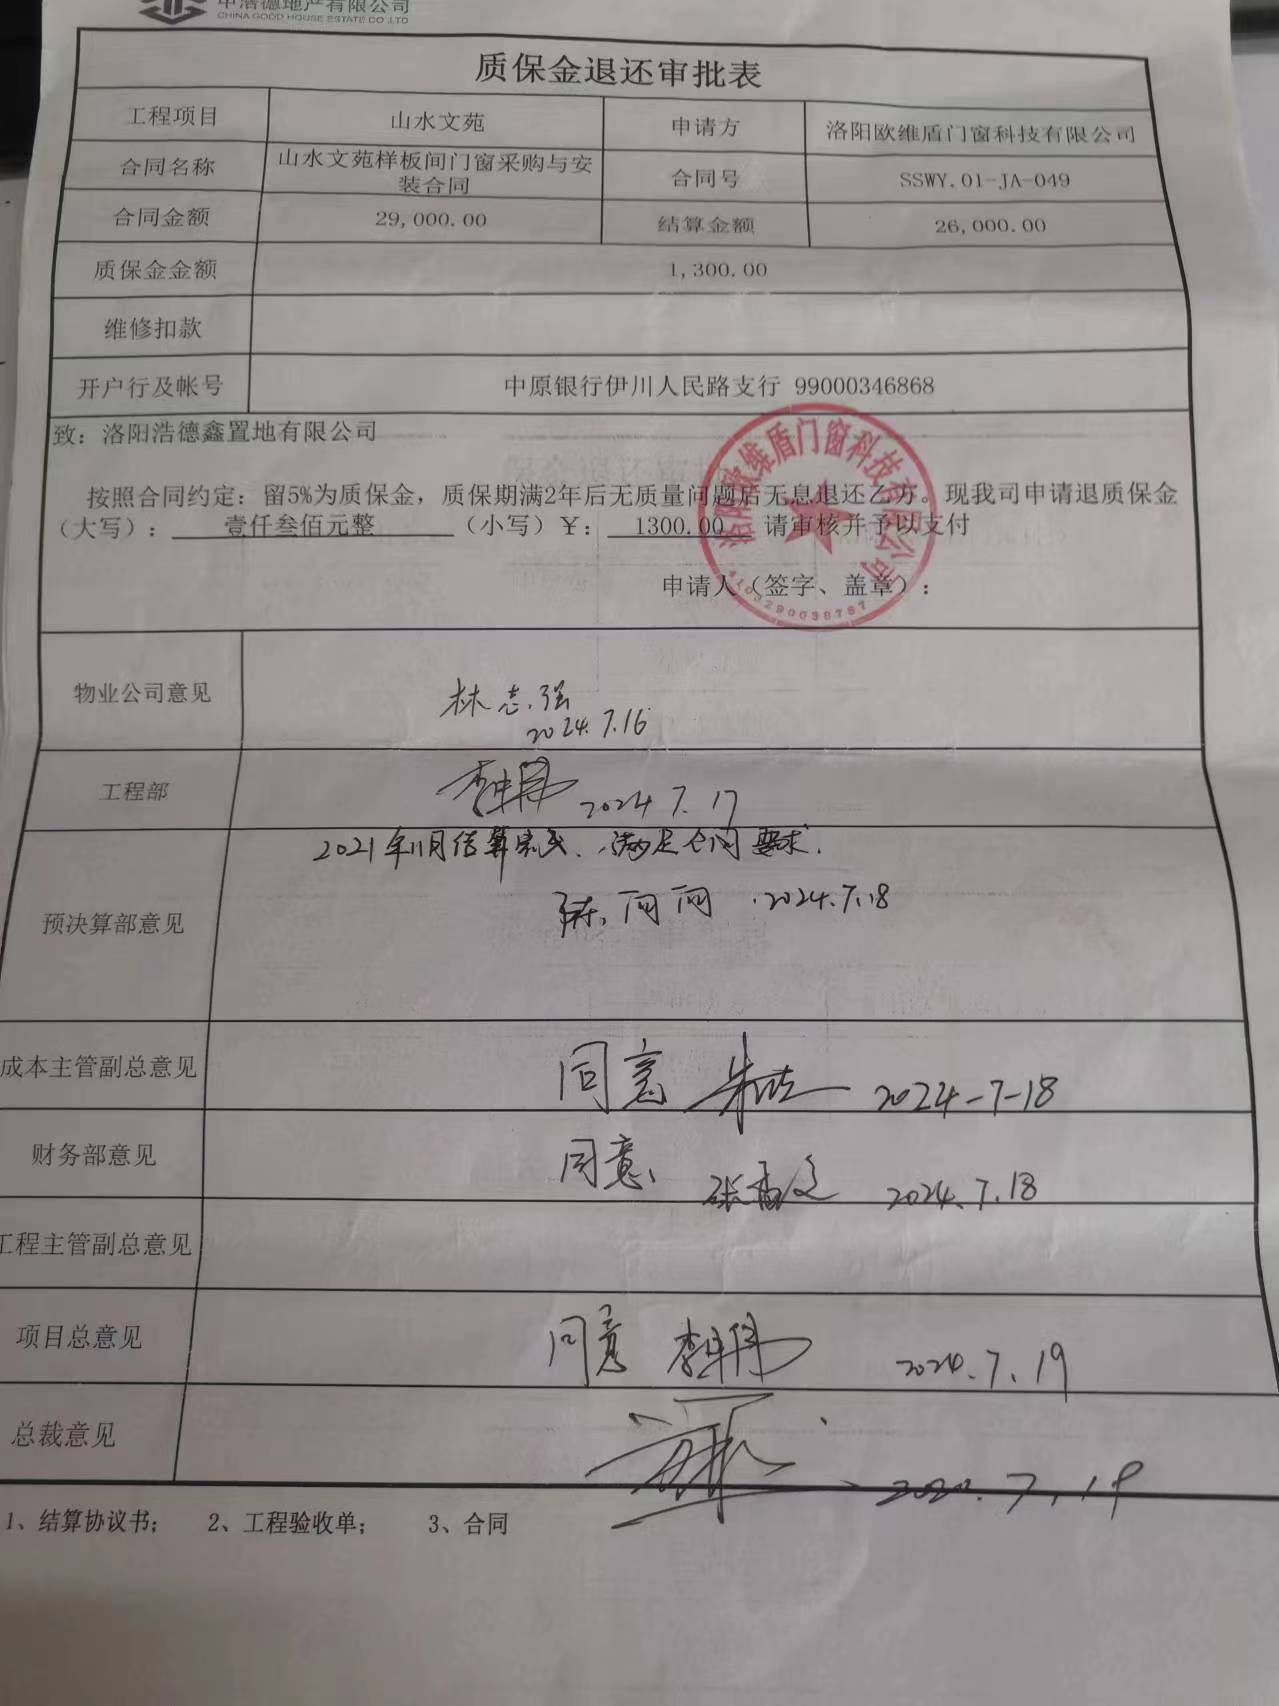 中浩德地产有限公司
CHINA GOOD HOUSE ESTATE CO.,LTD
质保金退还审批表
工程项目 山水文苑 申请方 洛阳欧维盾门窗科技有限公司
合同名称 山水文苑样板间门窗采购与安装合同 合同号 SSWY.01-JA-049
合同金额 29,000.00 结算金额 26,000.00
质保金金额 1,300.00
维修扣款
开户行及帐号 中原银行伊川人民路支行 99000346868
致：洛阳浩德鑫置地有限公司
按照合同约定：留5%为质保金，质保期满2年后无质量问题后无息退还乙方。现我司申请退质保金
（大写）： 壹仟叁佰元整 （小写）￥： 1300.00 请审核并予以支付
申请人（签字、盖章）：
洛阳欧维盾门窗科技有限公司
物业公司意见 林志强
2024.7.16
工程部 2024.7.17
2021年11月结算完成，满足合同要求.
预决算部意见 2024.7.18
成本主管副总意见 同意 2024-7-18
财务部意见 同意 2024.7.18
工程主管副总意见
项目总意见 同意 2024.7.19
总裁意见 7.19
1、结算协议书； 2、工程验收单； 3、合同